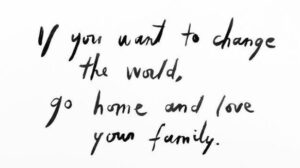 If you want to change
the world,
go home and love
your family.